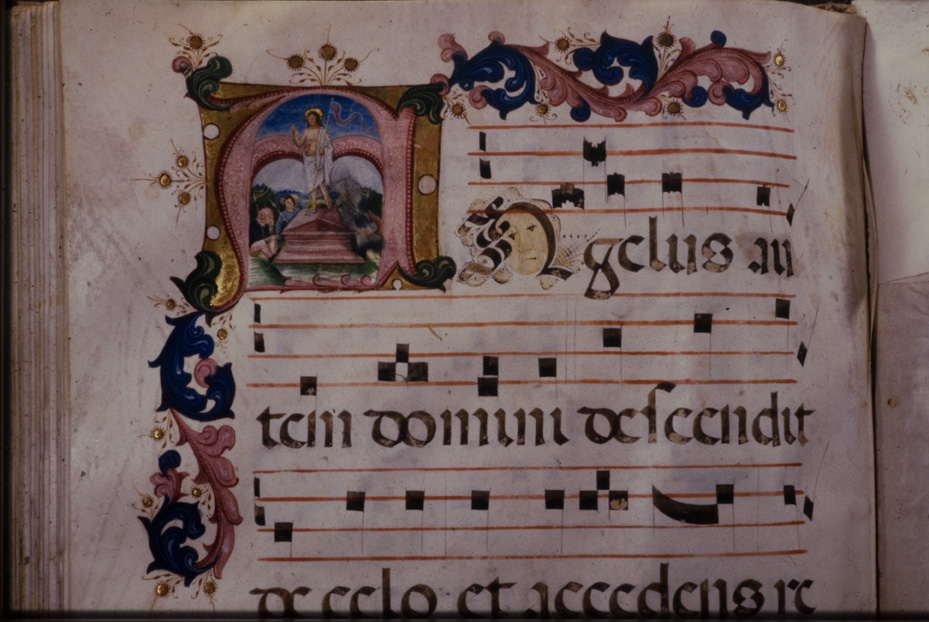 ANgelus au
tem domini descendit
de celo et accedens re